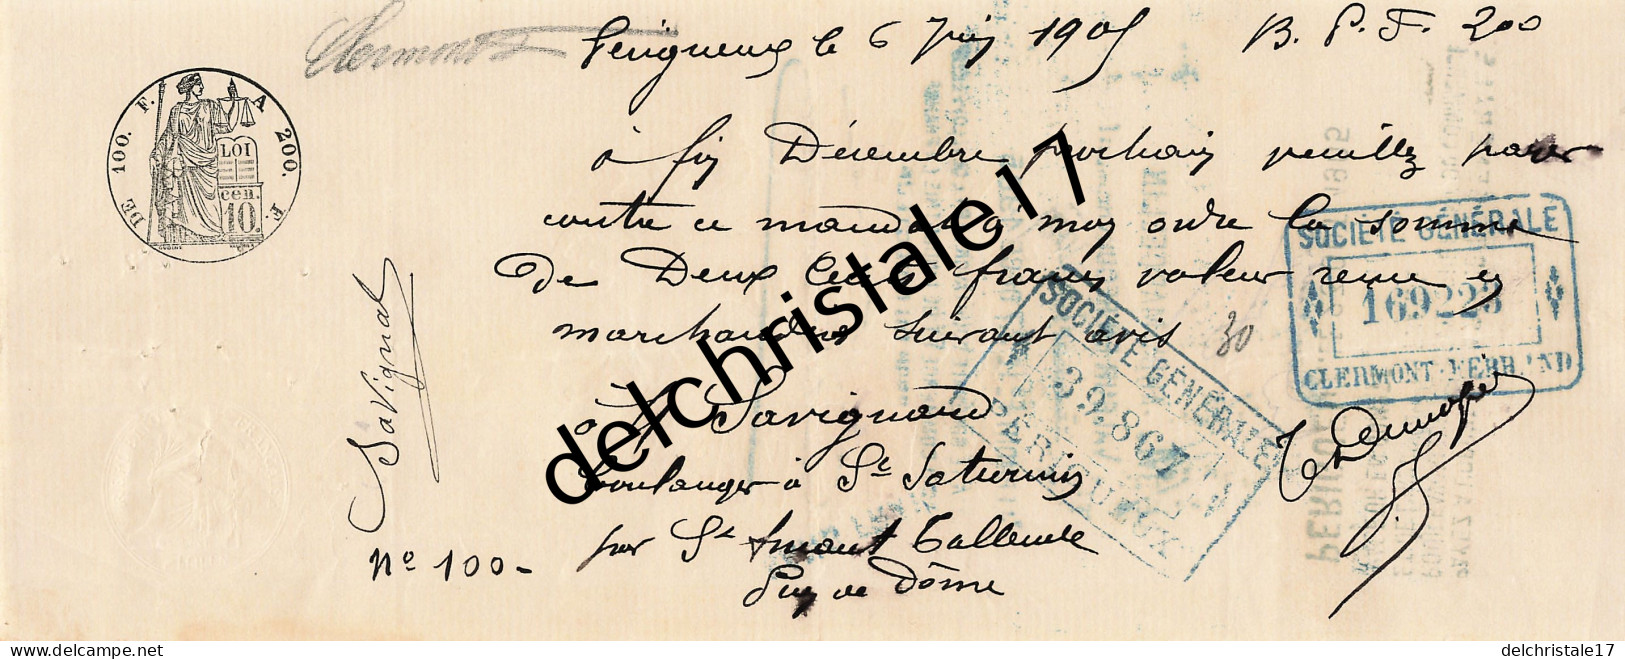 Clermont
Perigueux le 6 Juin 1905 B. P. F. 200
DE 100. F. A 200. F.
LOI
cen.
10.
à fin Décembre prochain veuillez payer
contre ce mandat à mon ordre la somme
de Deux Cents francs valeur reçue en
marchandises suivant avis 30
à Savignard
boulanger à St Saturnin
par St Amant Tallende
Puy de Dôme
Savignat
No 100-
SOCIÉTÉ GÉNÉRALE
169223
CLERMONT-FERRAND
SOCIÉTÉ GÉNÉRALE
39.867
PÉRIGUEUX
delchristale17
delchristale17